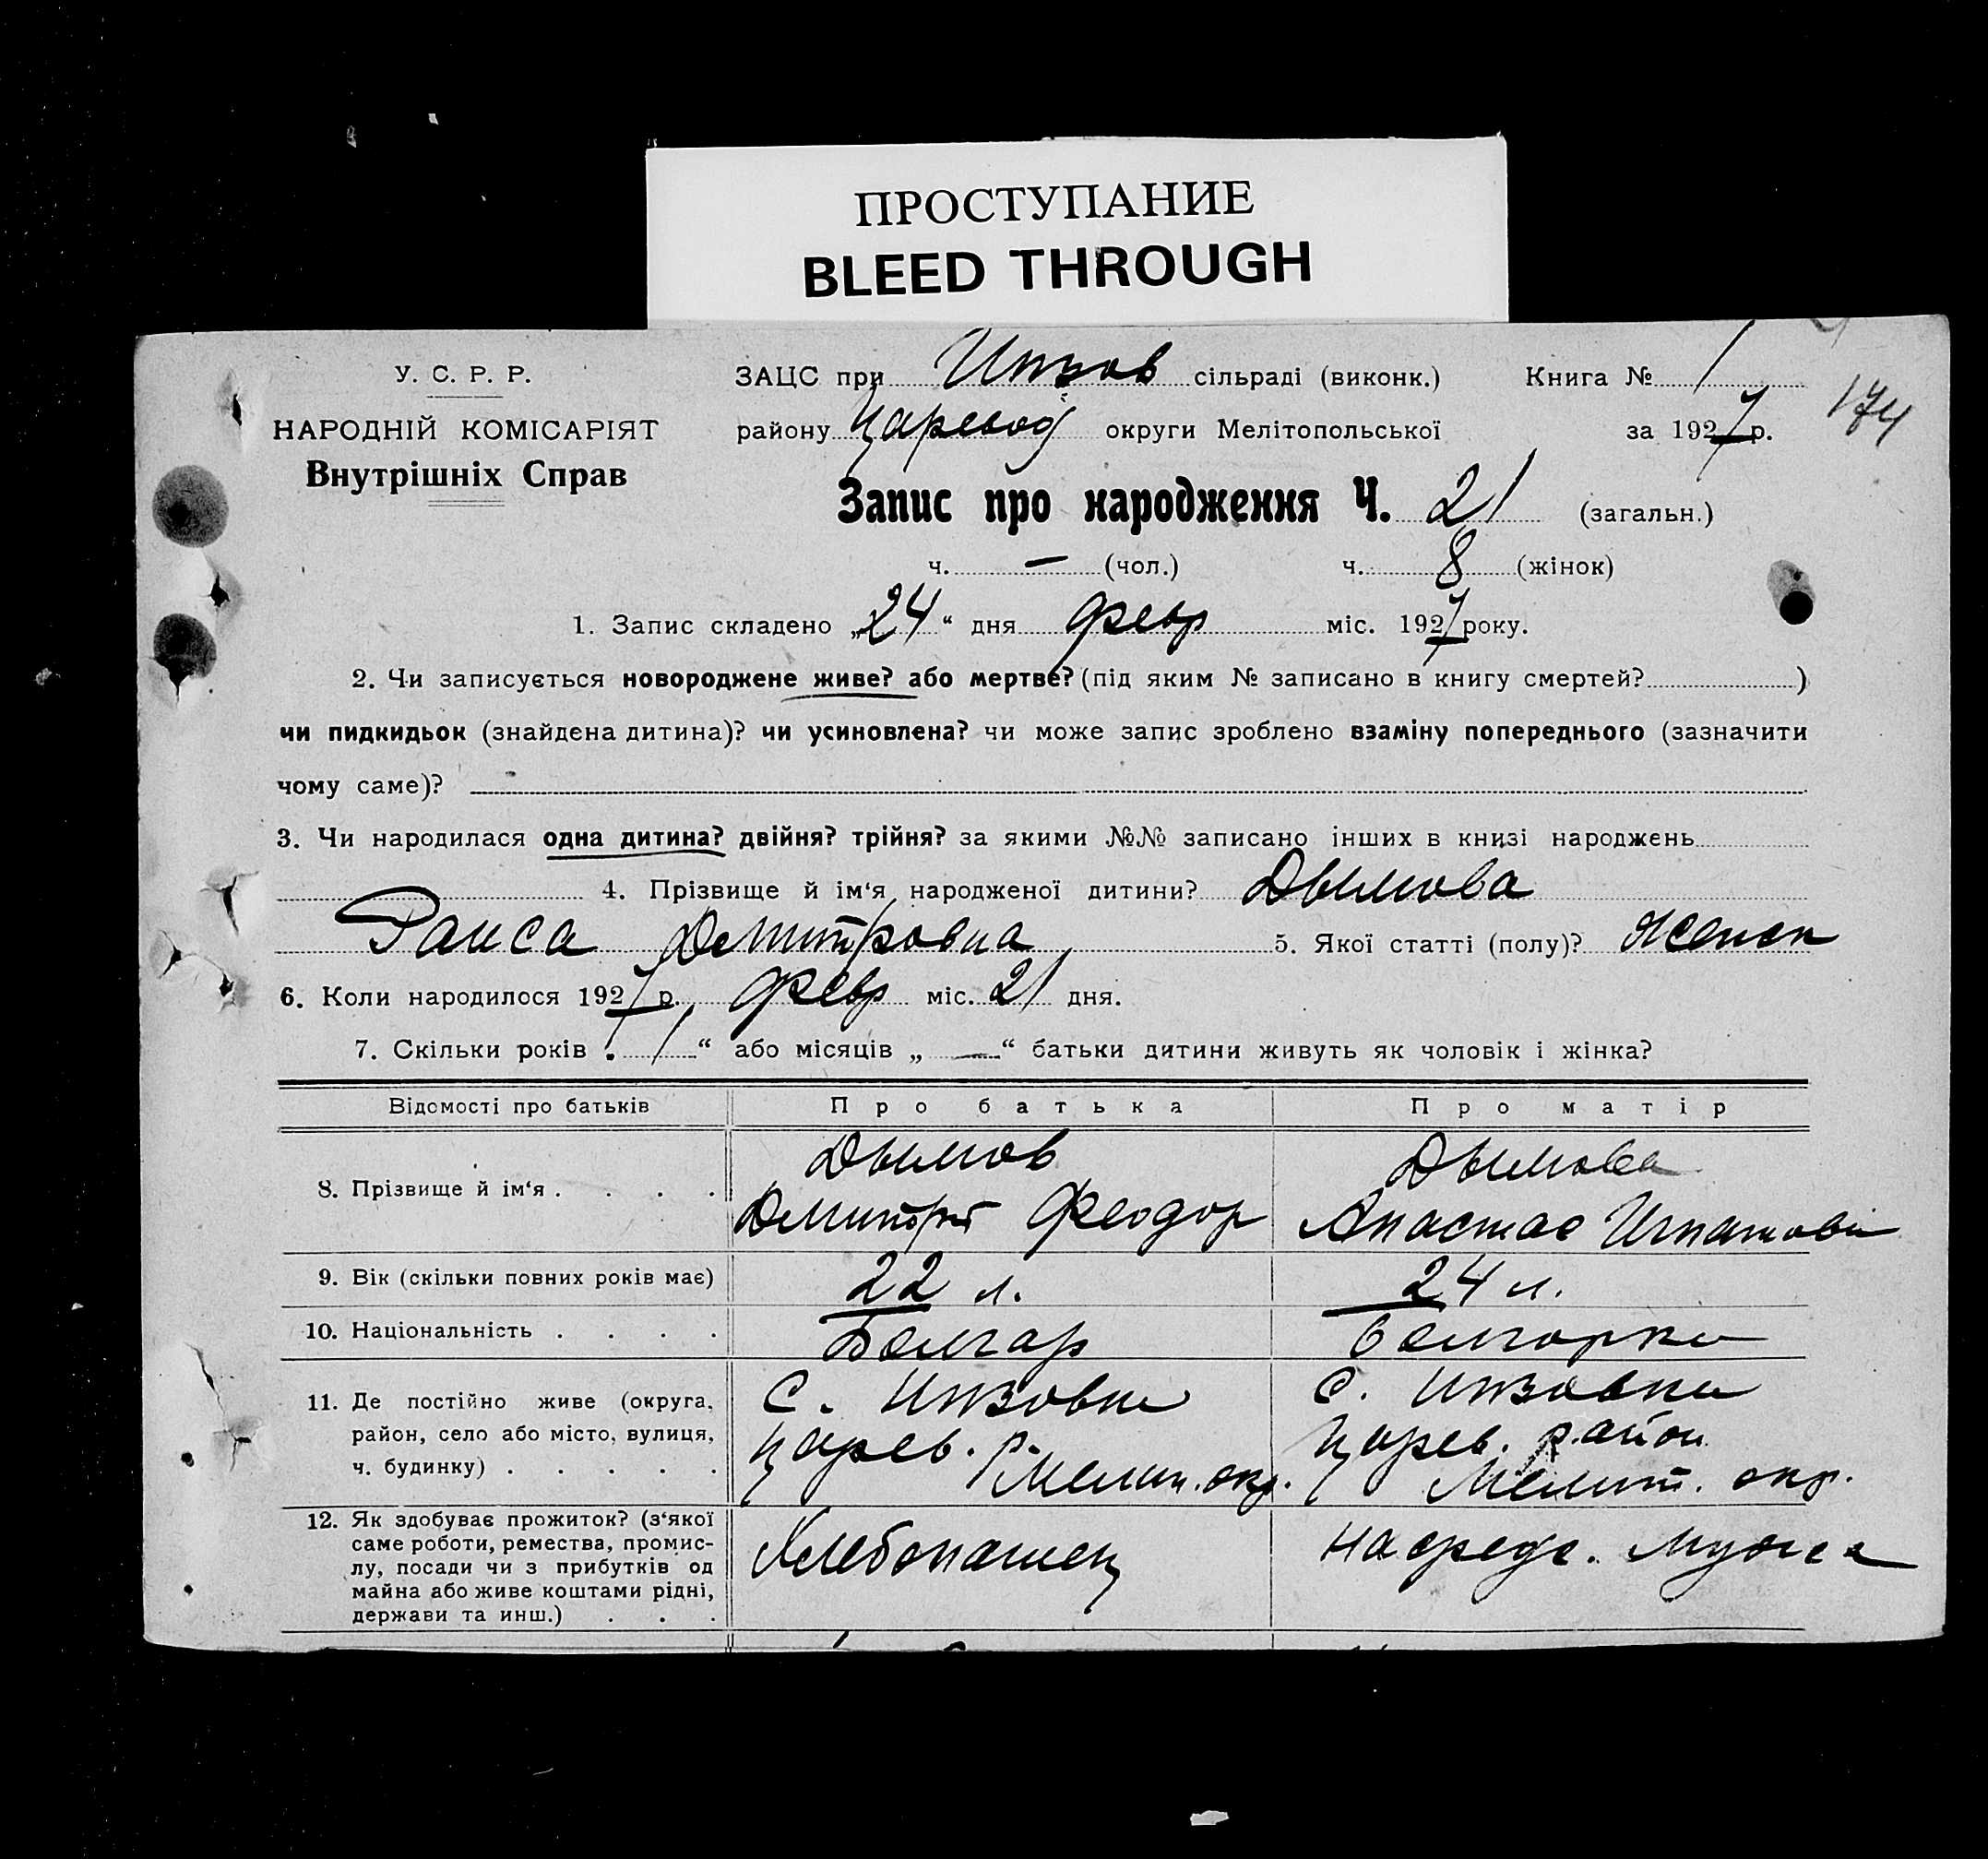 ПРОСТУПАНИЕ
BLEED THROUGH
У. С. Р. Р.
НАРОДНІЙ КОМІСАРІЯТ
Внутрішніх Справ
ЗАЦС при Инзов сільраді (виконк.) Книга № 1
району Царевод округи Мелітопольської за 1927 р.
174
Запис про народження Ч. 21 (загальн.)
ч. — (чол.) ч. 8 (жінок)
1. Запис складено „24“ дня февр міс. 1927 року.
2. Чи записується новороджене живе? або мертве? (під яким № записано в книгу смертей? )
чи пидкидьок (знайдена дитина)? чи усиновлена? чи може запис зроблено взаміну попереднього (зазначити
чому саме)?
3. Чи народилася одна дитина? двійня? трійня? за якими №№ записано інших в книзі народжень
4. Прізвище й ім‘я народженої дитини? Дымова
Раиса Дмитровна 5. Якої статті (полу)? женск
6. Коли народилося 1927 р. февр міс. 21 дня.
7. Скільки років „ 1 “ або місяців „ — “ батьки дитини живуть як чоловік і жінка?
Відомості про батьків Про батька Про матір
8. Прізвище й ім‘я . . . .
Дымов
Дмитрий Феодор
Дымова
Анастас Игнатови
9. Вік (скільки повних років має) 22 л. 24 л.
10. Національність . . . . Болгар болгорка
11. Де постійно живе (округа, район, село або місто, вулиця, ч. будинку) . . . . .
с. Инзовка
Царев. р.
Мелит. окр.
с. Инзовка
Царев. район
Мелит. окр.
12. Як здобуває прожиток? (з‘якої
саме роботи, ремества, промис-
лу, посади чи з прибутків од
майна або живе коштами рідні,
держави та инш.) . . .
Хлебопашец
на средс. мужа